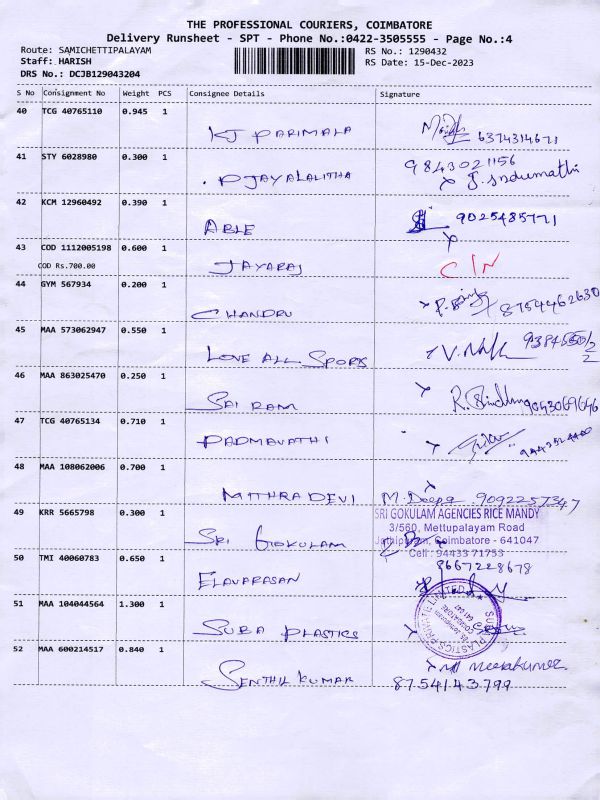 THE PROFESSIONAL COURIERS, COIMBATORE
Delivery Runsheet - SPT - Phone No.:0422-3505555 - Page No.:4
Route: SAMICHETTIPALAYAM RS No.: 1290432
Staff: HARISH RS Date: 15-Dec-2023
DRS No.: DCJB129043204
S No Consignment No Weight PCS Consignee Details Signature
40 TCG 40765110 0.945 1
KJ PARIMALA 6374314671
41 STY 6028980 0.300 1 9843021156
P JAYALALITHA J. Indumathi
42 KCM 12960492 0.390 1 9025485771
ABLE
43 COD 1112005198 0.600 1
COD Rs.700.00 JAYARAJ C/N
44 GYM 567934 0.200 1
CHANDRU 8754462630
45 MAA 573062947 0.550 1
LOVE ALL SPORTS
46 MAA 863025470 0.250 1
SAI RAM 9043069646
47 TCG 40765134 0.710 1
PADMAVATHI
48 MAA 108062006 0.700 1
MITHRA DEVI M. Deepa 9092257347
49 KRR 5665798 0.300 1 SRI GOKULAM AGENCIES RICE MANDY
3/560, Mettupalayam Road
SRI GOKULAM Coimbatore - 641047
Cell: 94433 71753
50 TMI 40060783 0.650 1 9667228678
ELAVARASAN
51 MAA 104044564 1.300 1
SUBA PLASTICS
52 MAA 600214517 0.840 1
Meenakumar
SENTHIL KUMAR 8754143799